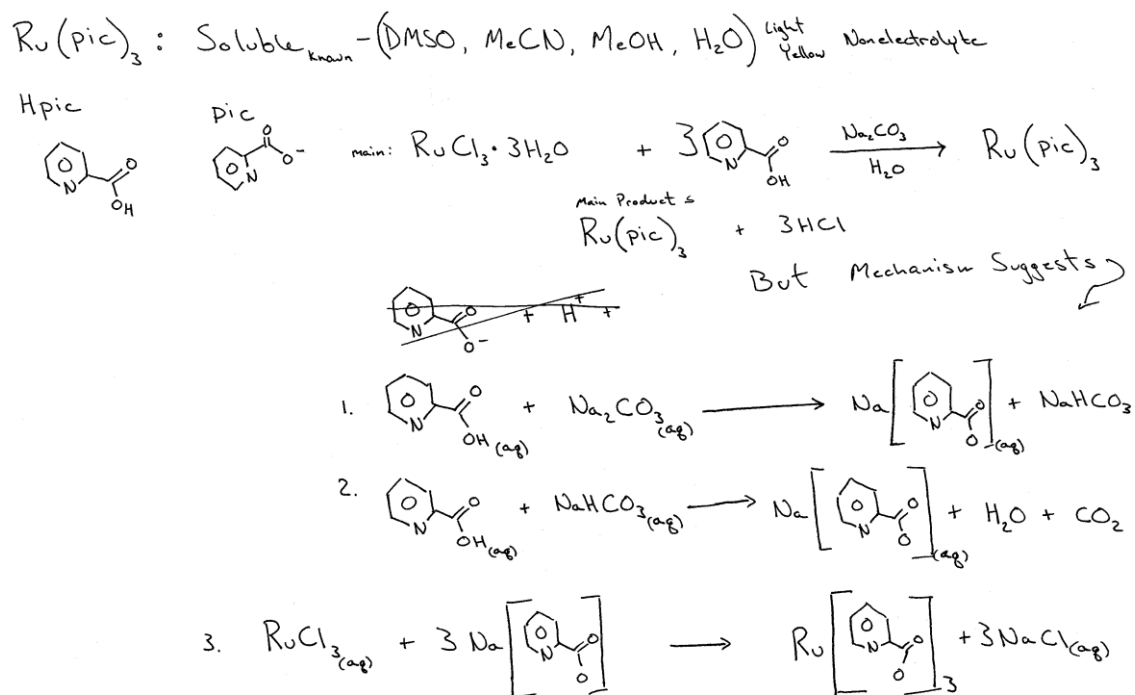 Ru(pic)₃ : Soluble known - (DMSO, MeCN, MeOH, H₂O) Light Yellow Nonelectrolyte
Hpic pic
N O OH N O O⁻ main: RuCl₃·3H₂O + 3 N O OH Na₂CO₃ H₂O → Ru(pic)₃
Main Products
Ru(pic)₃ + 3HCl
But Mechanism Suggests
N O O⁻ + H⁺ +
1. N O OH (aq) + Na₂CO₃(aq) → Na[N O O](aq) + NaHCO₃
2. N O OH (aq) + NaHCO₃(aq) → Na[N O O](aq) + H₂O + CO₂
3. RuCl₃(aq) + 3Na[N O O] → Ru[N O O]₃ + 3NaCl(aq)